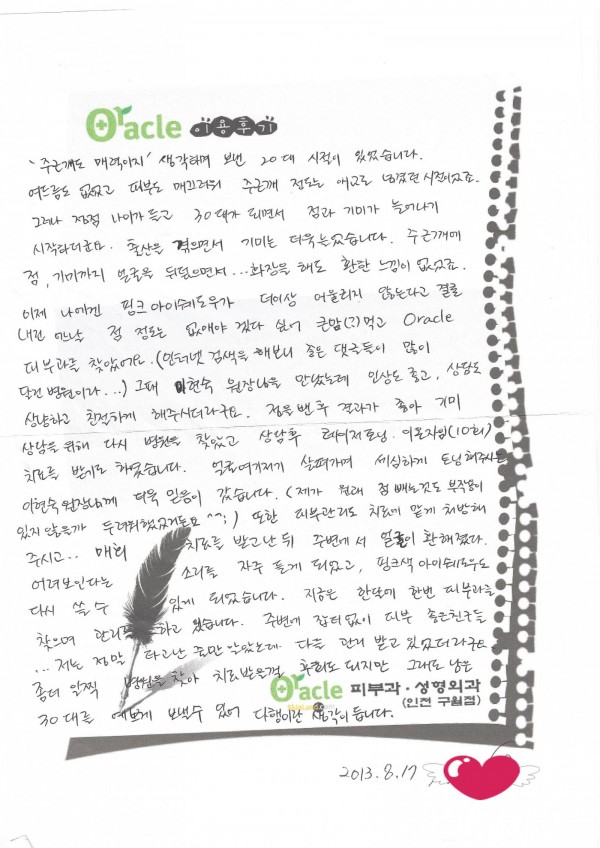 Oracle 이용후기
'주근깨도 매력이지' 생각하며 보낸 20대 시절이 있었습니다.
여드름도 없었고 피부도 매끄러워 주근깨 정도는 애교로 넘겼던 시절이었죠.
그러나 점점 나이가 들고 30대가 되면서 점과 기미가 늘어나기
시작하더군요. 출산을 겪으면서 기미는 더욱 늘었습니다. 주근깨에
점, 기미까지 얼굴을 뒤덮으면서...화장을 해도 환한 느낌이 없었죠.
이제 나에겐 핑크 아이쉐도우가 더이상 어울리지 않는다고 결론
내린 어느날 점 정도는 없애야 겠다 싶어 큰맘(?)먹고 Oracle
피부과를 찾았어요. (인터넷 검색을 해보니 좋은 댓글들이 많이
달린 병원이라...) 그때 이현숙 원장님을 만났는데 인상도 좋고, 상담도
상냥하고 친절하게 해주시더라구요. 점을 뺀 후 결과가 좋아 기미
상담을 위해 다시 병원을 찾았고 상담후 레이저토닝. 이온자임(10회)
치료를 받기로 하였습니다. 얼굴 여기저기 살펴가며 세심하게 토닝해주시는
이현숙 원장님께 더욱 믿음이 갔습니다. (제가 원래 점 빼는것도 부작용이
있지 않을까 두려워했었거든요 ^^;) 또한 피부관리도 치료에 맞게 처방해
주시고.. 매회 치료를 받고난 뒤 주변에서 얼굴이 환해졌다.
어려보인다는 소리를 자주 듣게 되었고, 핑크색 아이쉐도우도
다시 쓸 수 있게 되었습니다. 지금은 한달에 한번 피부과를
찾으며 관리를 하고 있습니다. 주변에 잡티없이 피부 좋은친구들
...저는 정말 타고난 줄만 알았는데 다들 관리 받고 있었더라구요.
좀더 일찍 병원을 찾아 치료받을걸 후회도 되지만 그래도 남은
30대를 예쁘게 보낼수 있어 다행이란 생각이 듭니다.
Oracle 피부과·성형외과
(인천 구월점)
2013.8.17